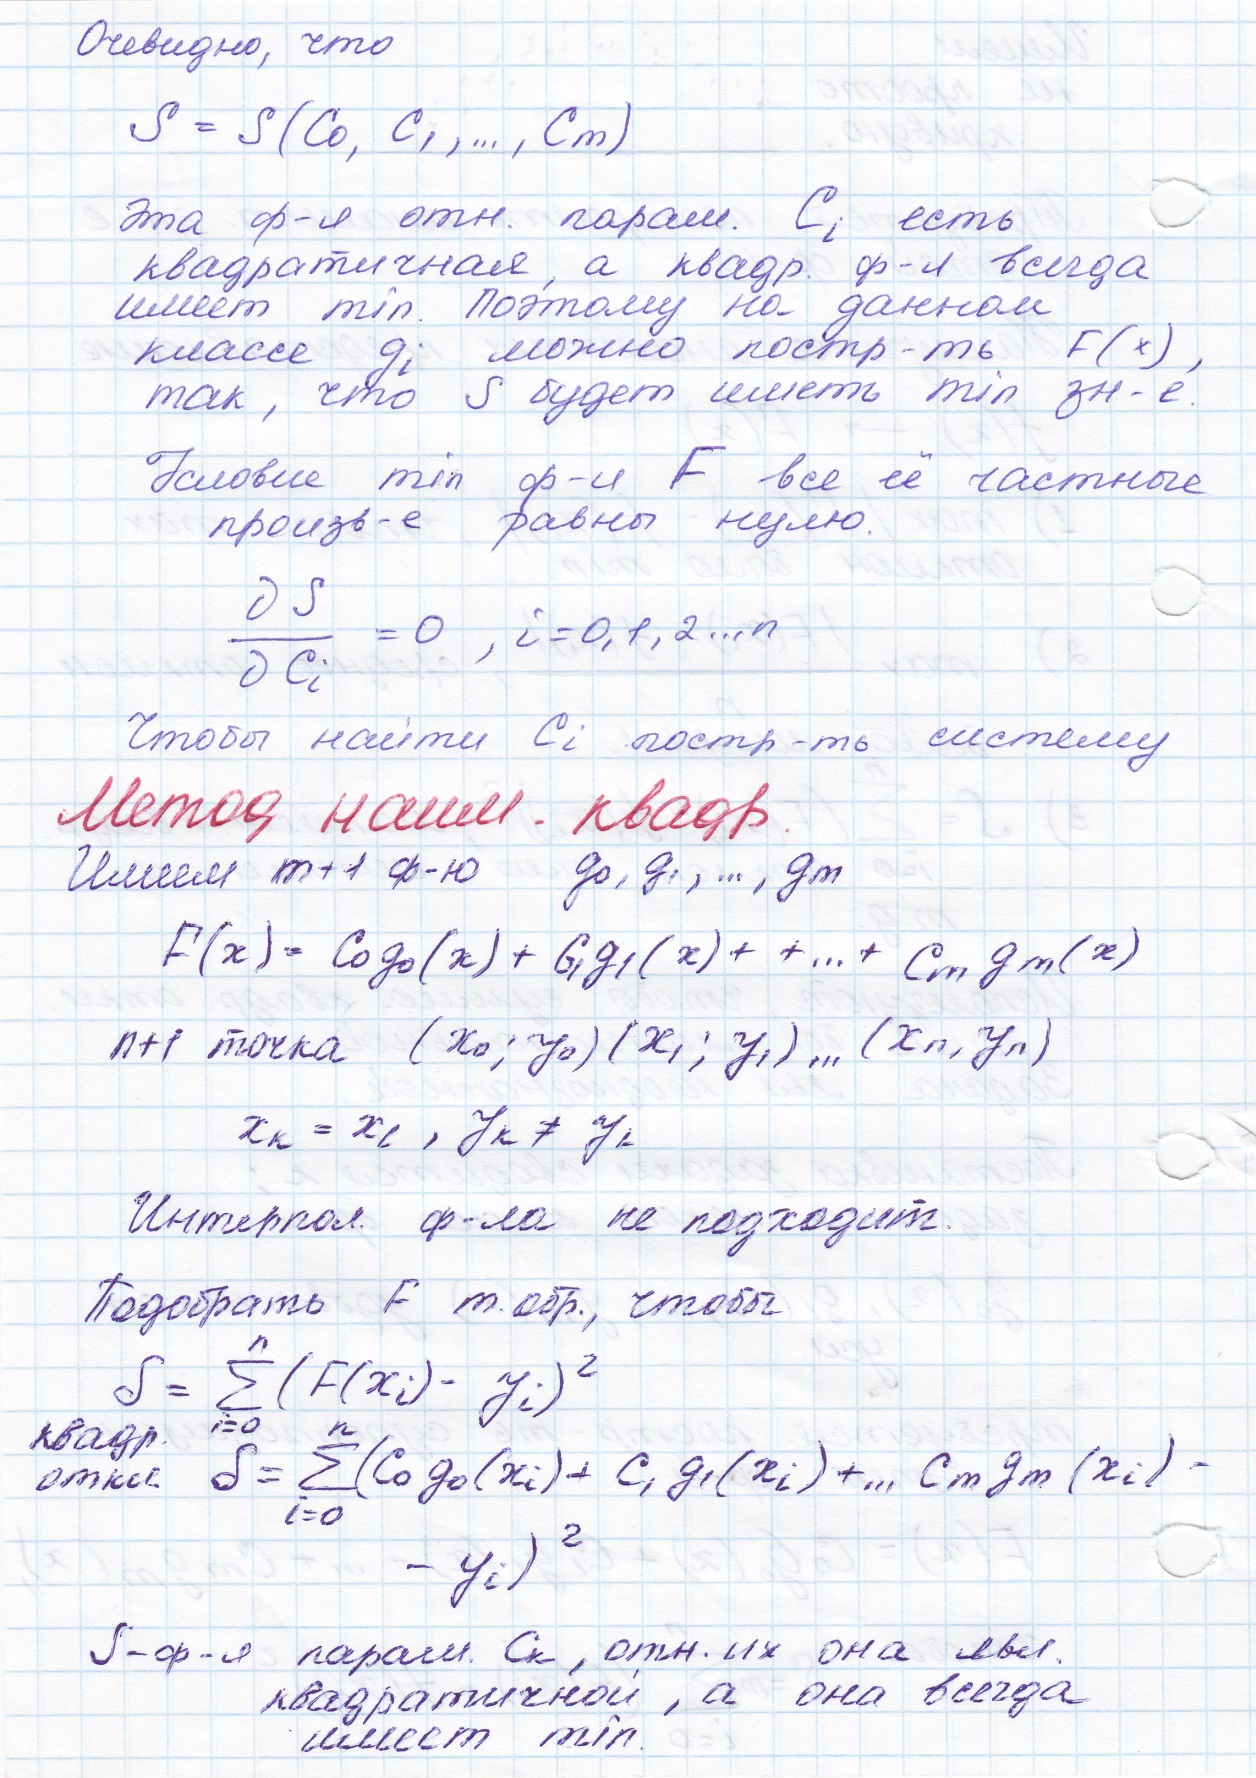 Очевидно, что
S = S(C0, C1, ..., Cm)
Эта ф-я отн. парам. Ci есть
квадратичная, а квадр. ф-я всегда
имеет min. Поэтому на данном
классе gi можно постр-ть F(x),
так, что S будет иметь min зн-е.
Условие min ф-и F все её частные
произв-е равны нулю.
∂S/∂Ci = 0, i = 0, 1, 2 ... n
Чтобы найти Ci постр-ть систему
Метод наим. квадр.
Имеем m+1 ф-ю g0, g1, ..., gm
F(x) = C0g0(x) + C1g1(x) + + ... + Cmgm(x)
n+1 точка (x0; y0) (x1; y1) ... (xn, yn)
xk = xl, yk ≠ yl
Интерпол. ф-ла не подходит.
Подобрать F т. обр., чтобы
S = ∑ i=0 n (F(xi) - yi)²
квадр. откл. S = ∑ i=0 n (C0g0(xi) + C1g1(xi) + ... Cmgm(xi) -
- yi)²
S-ф-я парам. Ck, отн. их она явл.
квадратичной, а она всегда
имеет min.